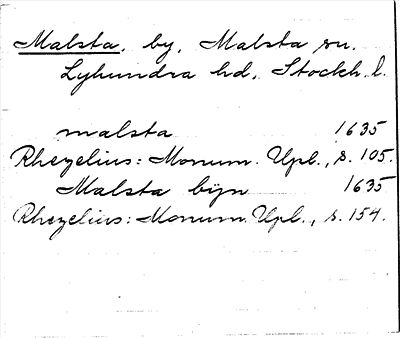 Malsta, by, Malsta sn.
Lyhundra hd, Stockh. l.
malsta 1635
Rhezelius: Monum. Upl., s. 105.
Malsta bijn 1635
Rhezelius: Monum. Upl., s. 154.